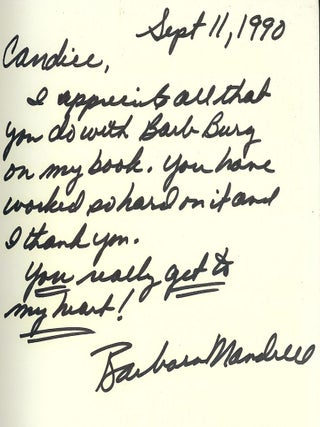 Sept 11, 1990
Candice,
I appreciate all that
you do with Barb Burg
on my book. You have
worked so hard on it and
I thank you.
You really get to
my heart!
Barbara Mandrell